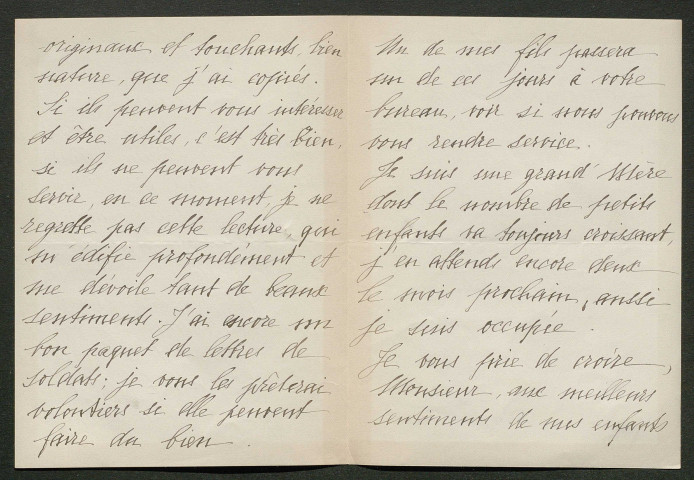 originaux et touchants, bien
nature, que j'ai copiés.
Si ils peuvent vous intéresser
et être utiles, c'est très bien,
si ils ne peuvent vous
servir, en ce moment, je ne
regrette pas cette lecture, qui
m'édifie profondément et
me dévoile tant de beaux
sentiments. J'ai encore un
bon paquet de lettres de
soldats; je vous les prêterai
volontiers si elle peuvent
faire du bien.
Un de mes fils passera
un de ces jours à votre
bureau, voir si nous pouvons
vous rendre service.
Je suis une grand'Mère
dont le nombre de petits
enfants va toujours croissant,
j'en attends encore deux
le mois prochain, aussi
je suis occupée.
Je vous prie de croire,
Monsieur, aux meilleurs
sentiments de mes enfants